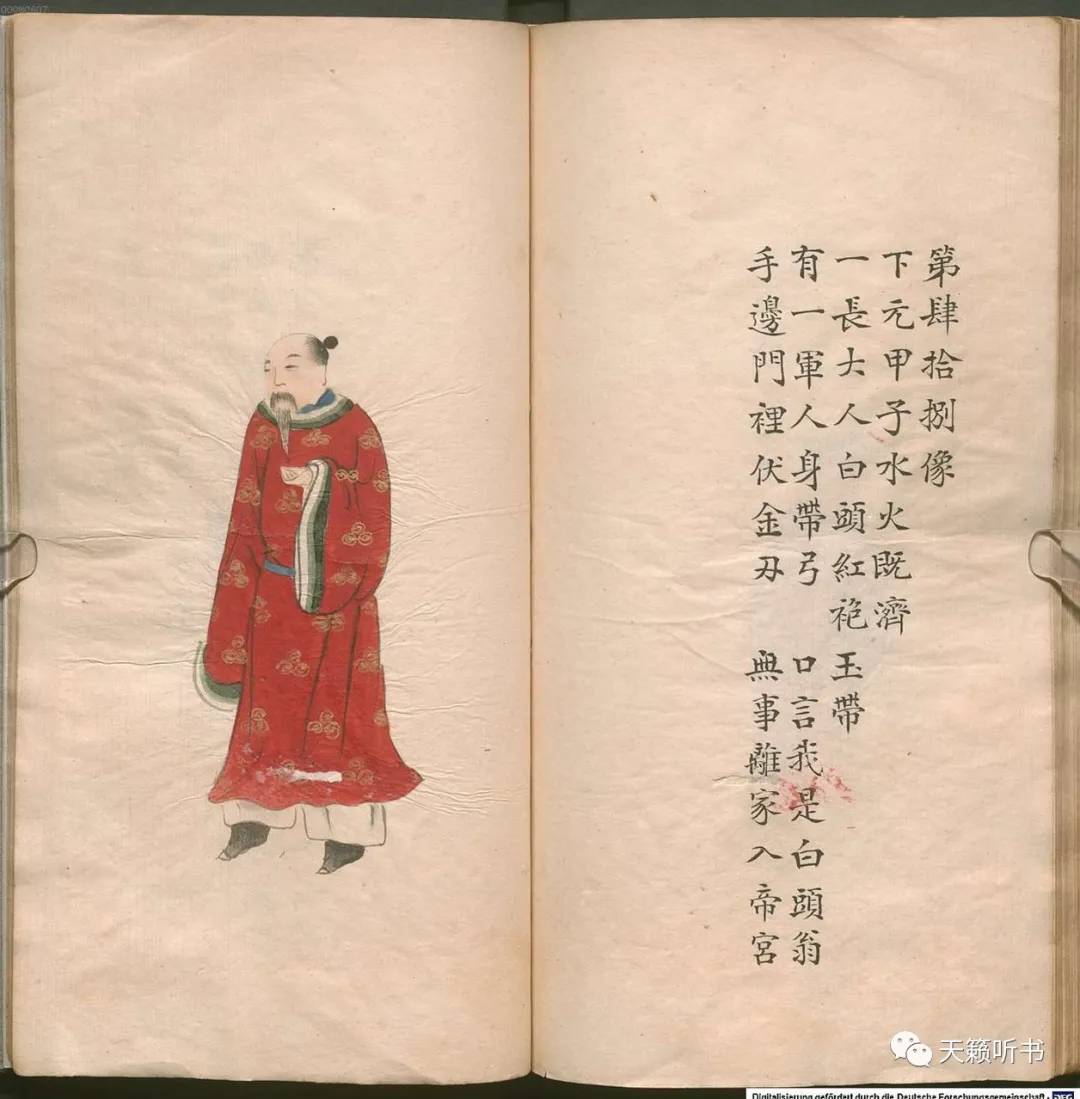 00080607
第肆拾捌像
下元甲子水火既濟
一長大人白頭紅袍玉帶
有一軍人身帶弓 口言我是白頭翁
手邊門裡伏金刃 無事離家入帝宮
天籁听书
Digitalisierung gefördert durch die Deutsche Forschungsgemeinschaft - DFG